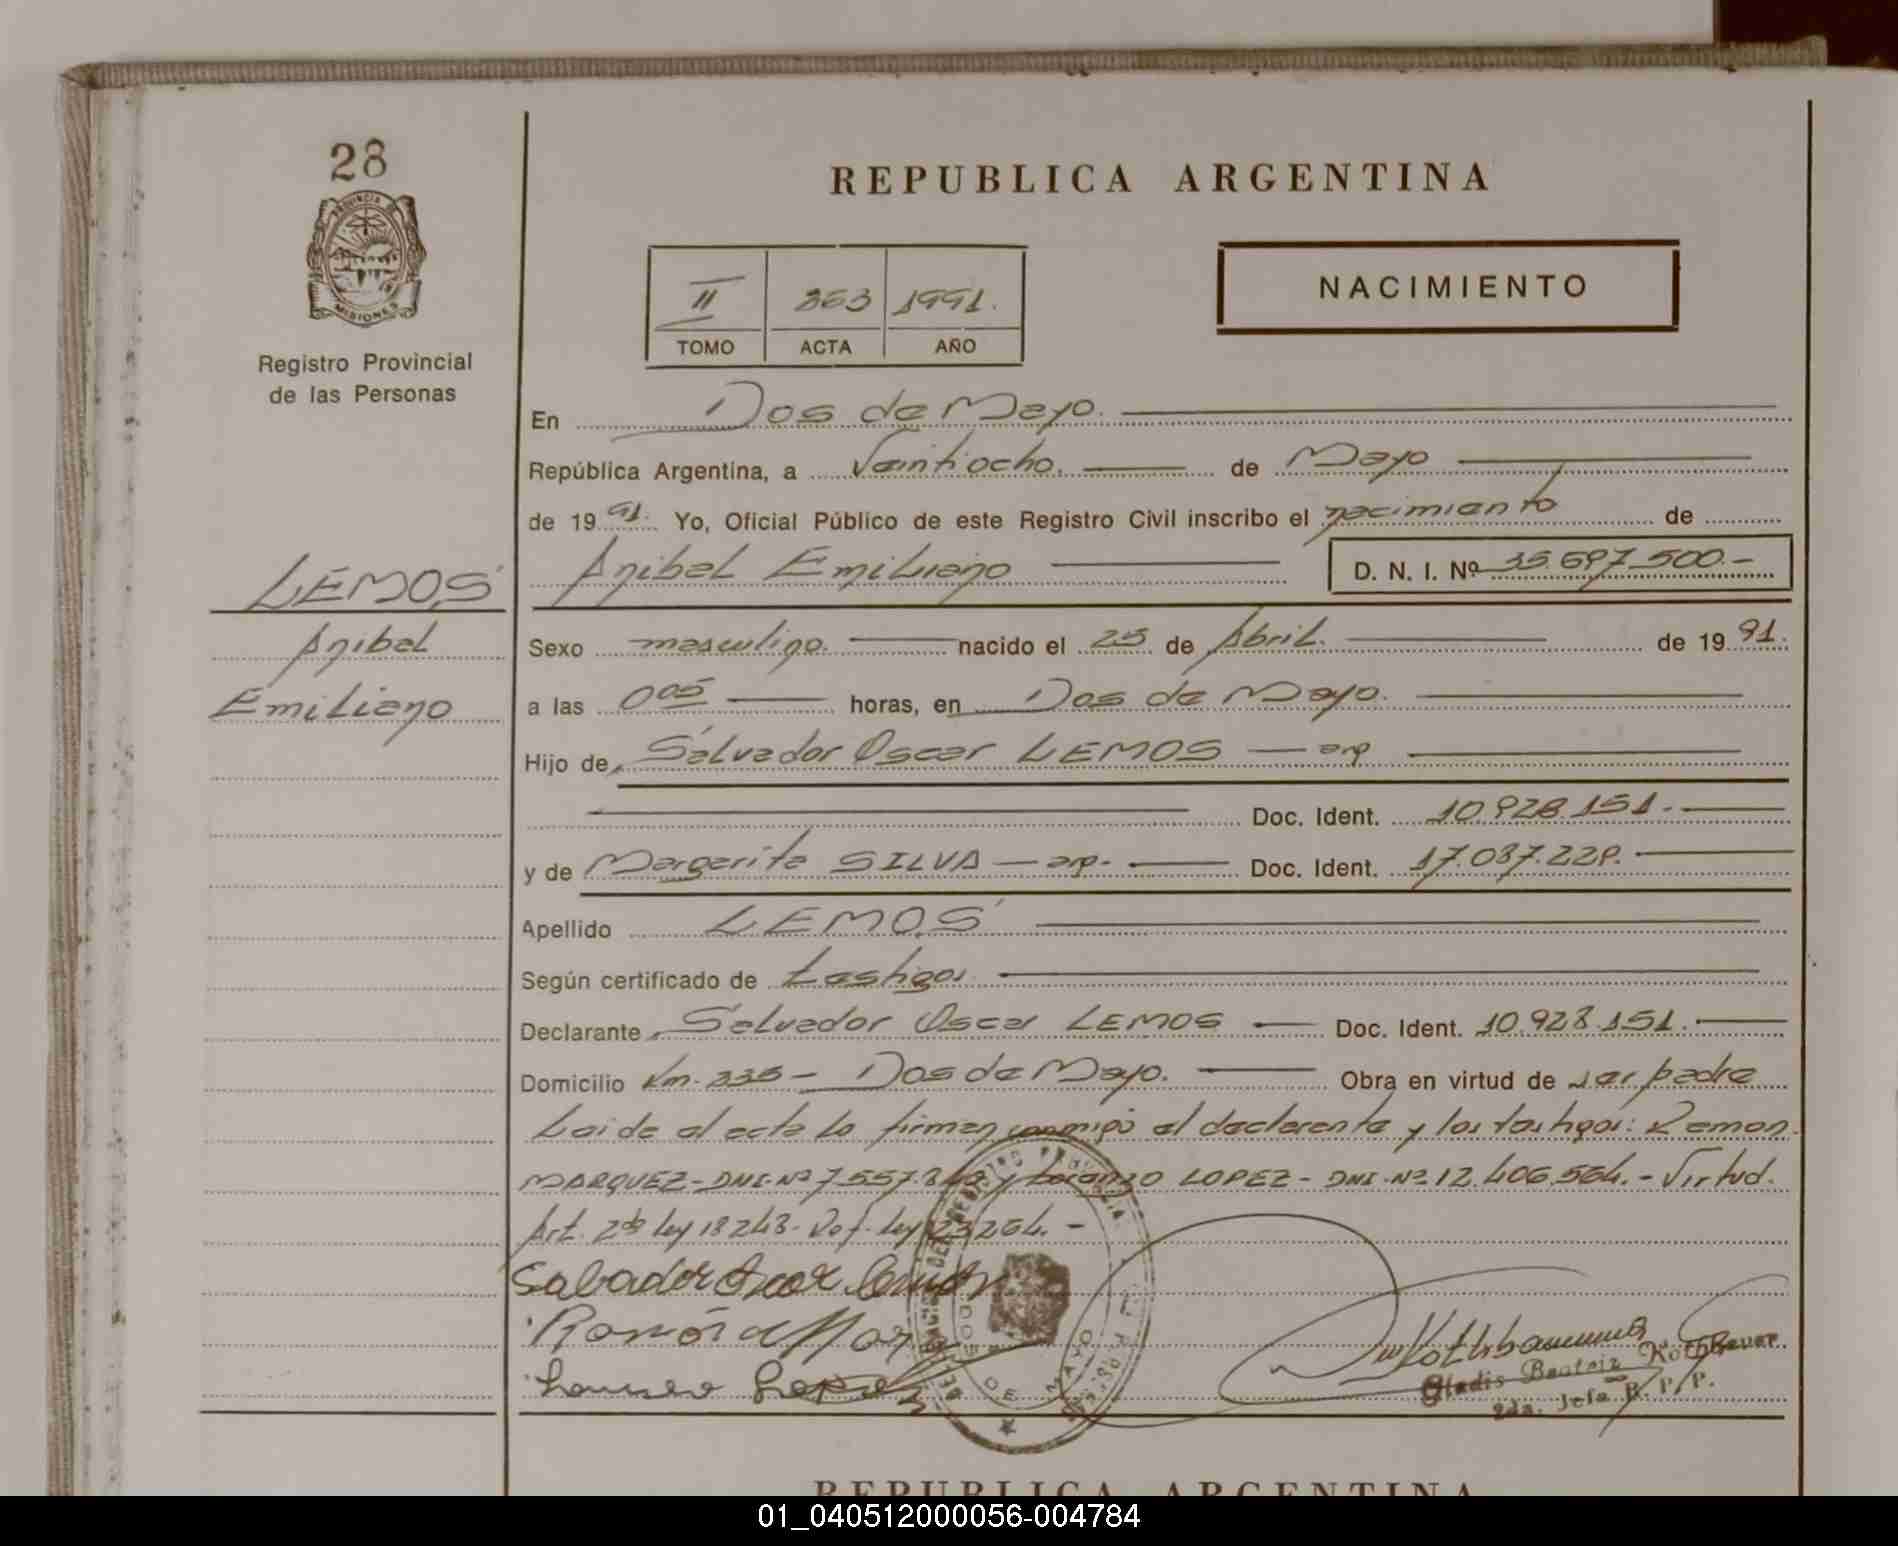 28
PROVINCIA DE
MISIONES
Registro Provincial
de las Personas
REPUBLICA ARGENTINA
II 363 1991.
TOMO ACTA AÑO
NACIMIENTO
En Dos de Mayo.
República Argentina, a Veintiocho. de Mayo
de 1991. Yo, Oficial Público de este Registro Civil inscribo el nacimiento de
LEMOS Anibal Emiliano D. N. I. Nº 35.697.500.-
Anibal Sexo masculino. nacido el 25 de Abril. de 1991.
Emiliano a las 0 05 horas, en Dos de Mayo.
Hijo de Salvador Oscar LEMOS — arg
Doc. Ident. 10.928.151.-
y de Margarita SILVA — arg.- Doc. Ident. 17.037.229.
Apellido LEMOS
Según certificado de testigos.
Declarante Salvador Oscar LEMOS Doc. Ident. 10.928.151.
Domicilio Km. 335 - Dos de Mayo. Obra en virtud de ser padre
Leida el acta la firman conmigo el declarante y los testigos: Ramon
MARQUEZ-DNI-Nº 7.557. y Lorenzo LOPEZ - DNI-Nº 12.406.564.- Virtud.
Art. 2do ley 18248. Ley 23264.-
Salbador Oscar Lemos
Ramón Mar
Lorenso Lopez
DOS DE MAYO
Gladis Beatriz Kothbauer
2da. Jefa R. P. P.
REPUBLICA ARGENTINA
01_040512000056-004784